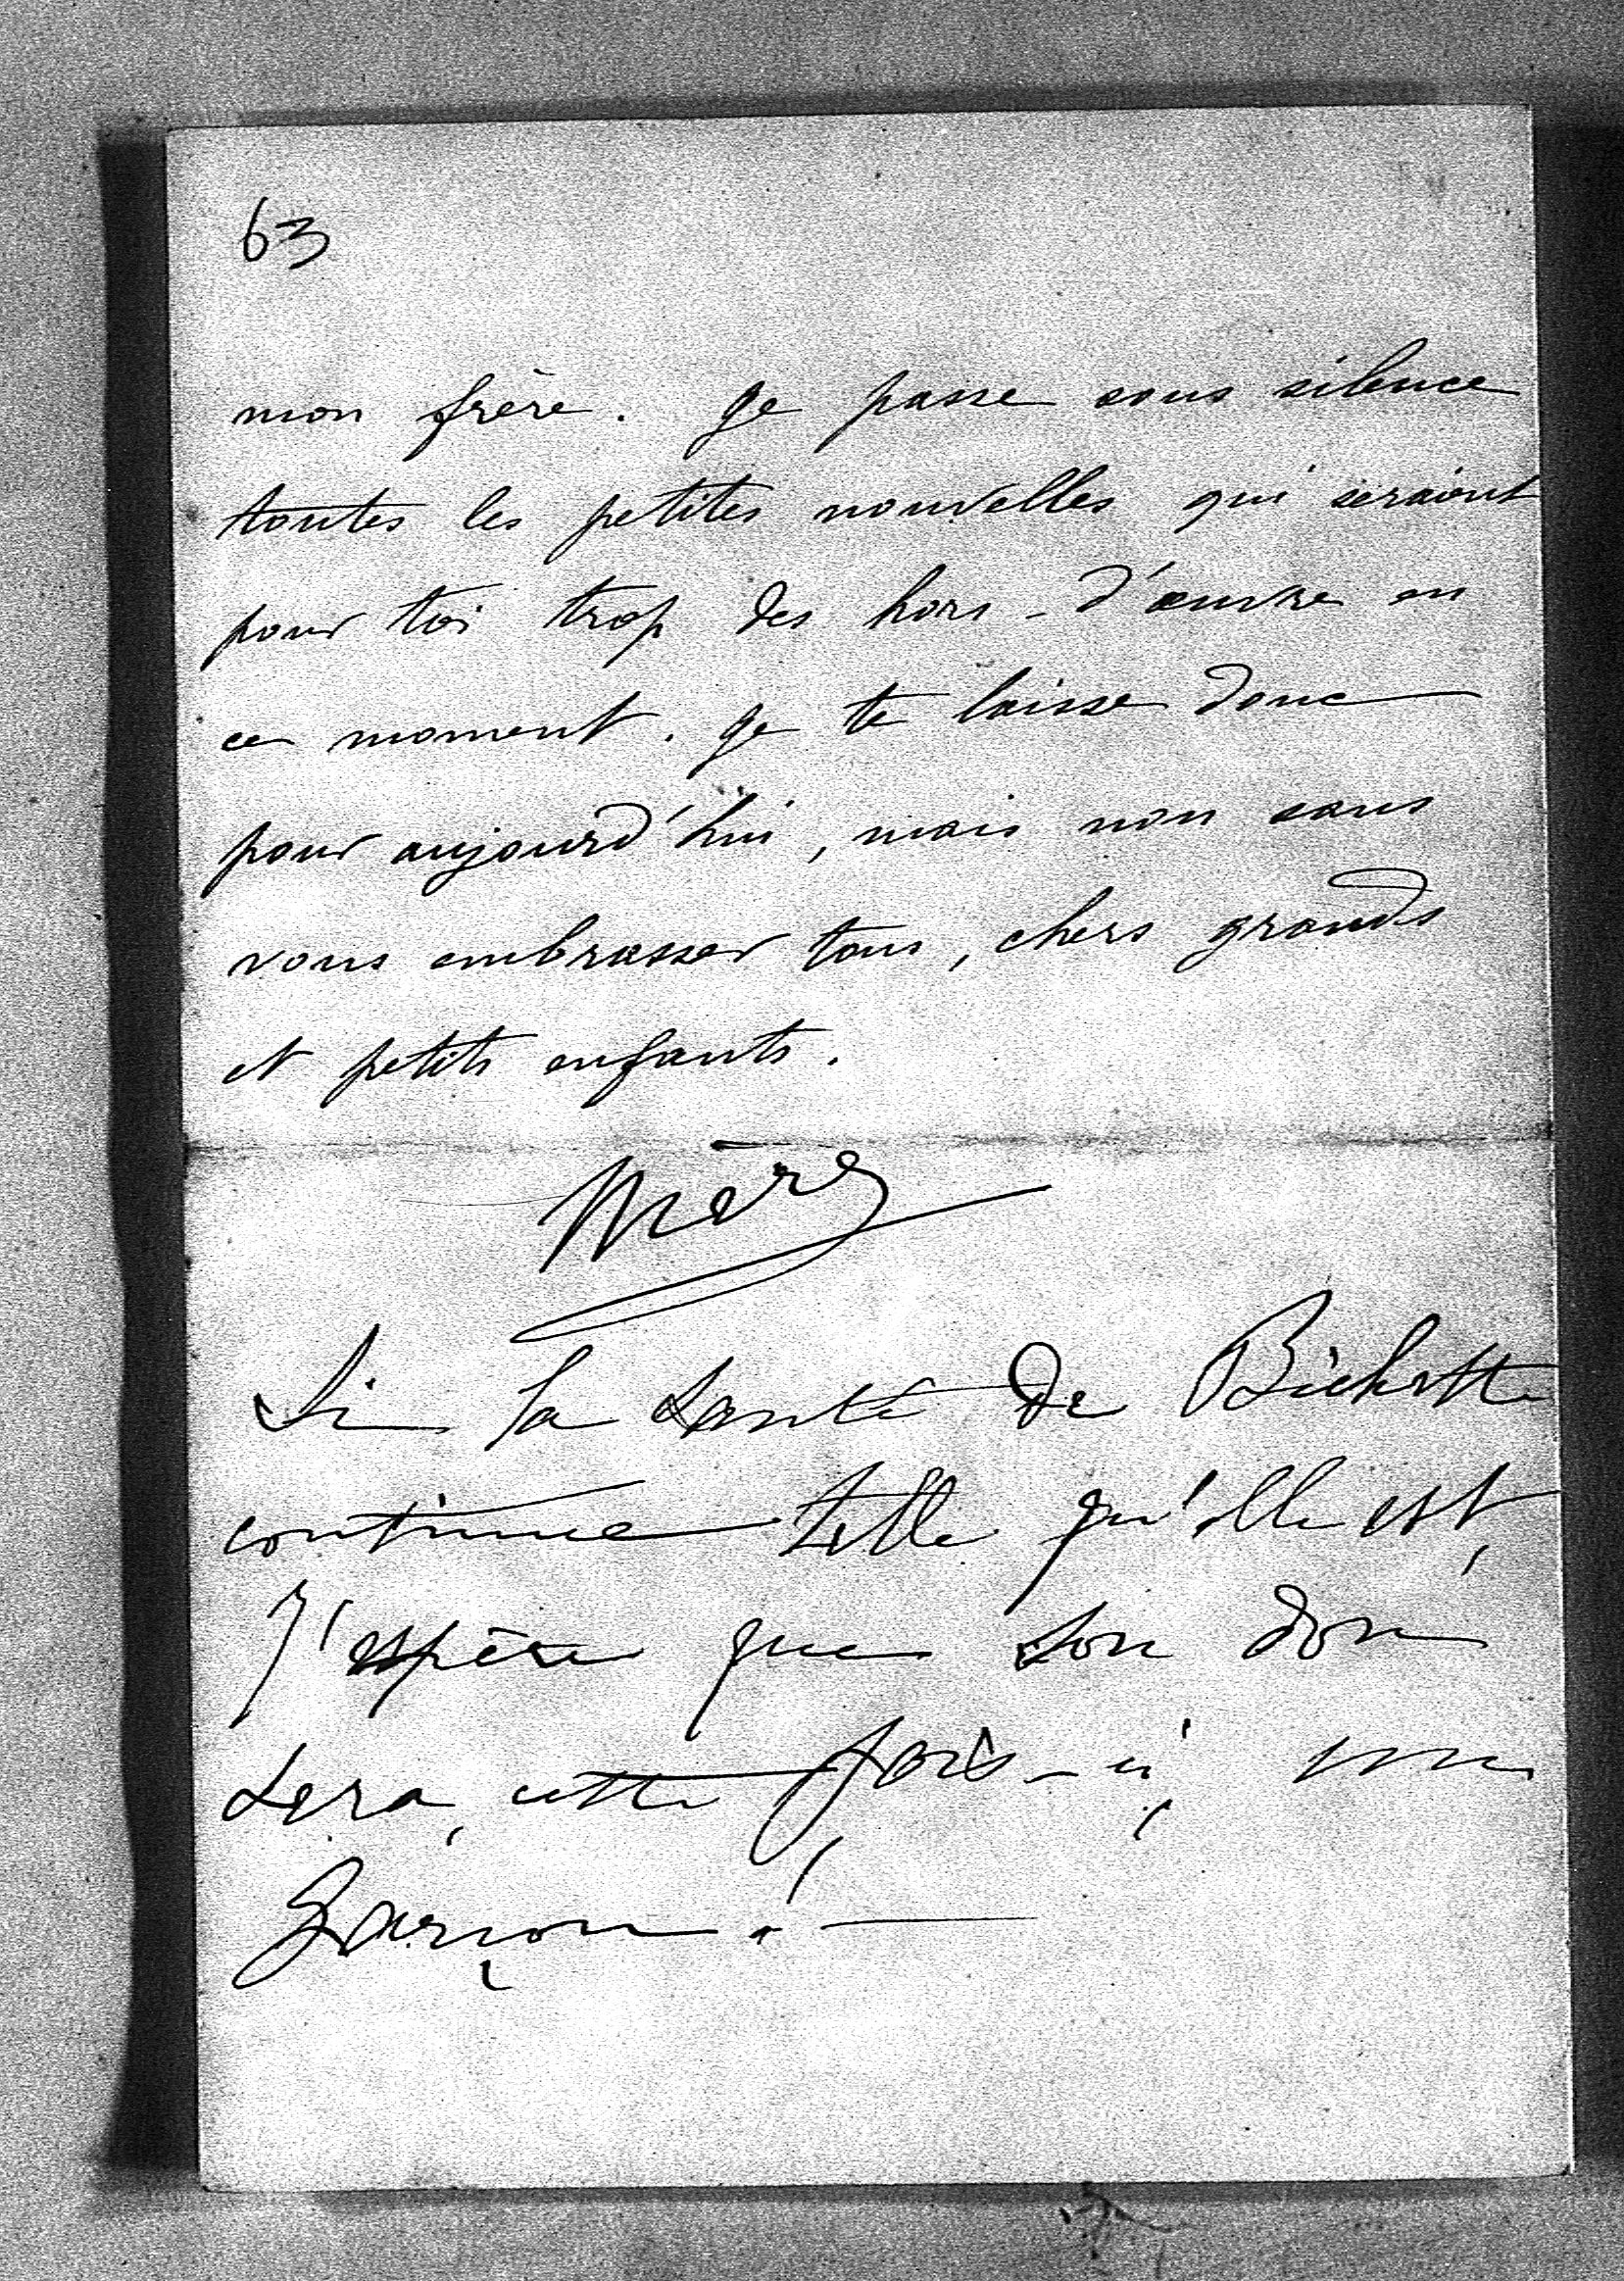 63
mon frère. Je passe sous silence
toutes les petites nouvelles qui seraient
pour toi trop des hors-d'œuvre en
ce moment. Je te laisse donc
pour aujourd'hui, mais non sans
vous embrasser tous, chers grands
et petits enfants.
Mère
Si la santé de Bichette
continue telle qu'elle est,
j'espère que son don
sera, cette fois-ci, un
garçon!—